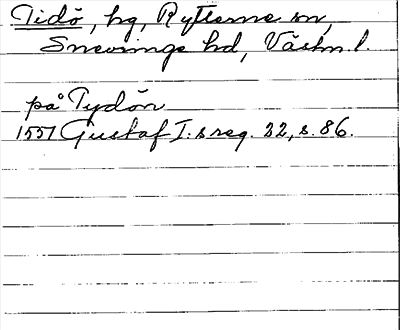 Tidö, hg, Rytterne sn,
Snevringe hd, Västm. l.
på Tydön
1551 Gustaf I:s reg. 22, s. 86.